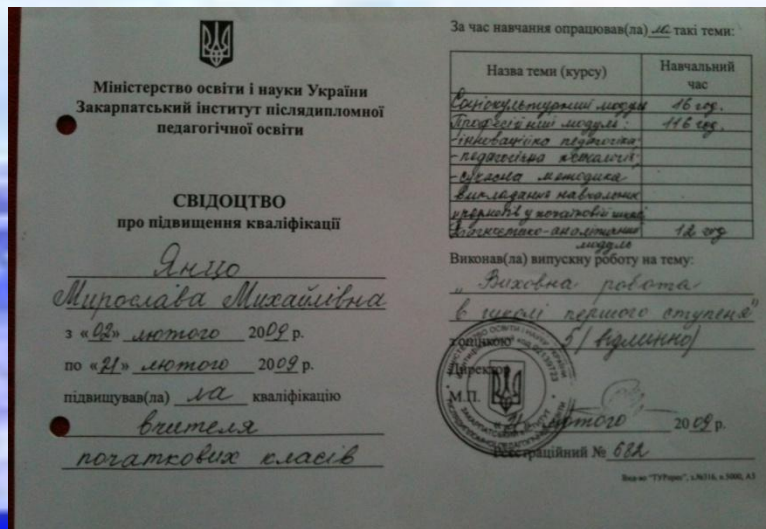 Міністерство освіти і науки України
Закарпатський інститут післядипломної
педагогічної освіти
СВІДОЦТВО
про підвищення кваліфікації
Янцо
Мирослава Михайлівна
з «02» лютого 2009 р.
по «21» лютого 2009 р.
підвищував(ла) ла кваліфікацію
вчителя
початкових класів
За час навчання опрацював(ла) ла такі теми:
Назва теми (курсу) Навчальний
час
Соціокультурний модуль 16 год.
Професійний модуль: 116 год.
-інноваційна педагогіка;
-педагогічна психологія;
-сучасна методика
викладання навчальних
предметів у початковій школі
Діагностико-аналітичний 12 год
модуль
Виконав(ла) випускну роботу на тему:
„Виховна робота
в школі першого ступеня"
з оцінкою 5 (відмінно)
Директор
М.П.
21 лютого 2009 р.
Реєстраційний № 682